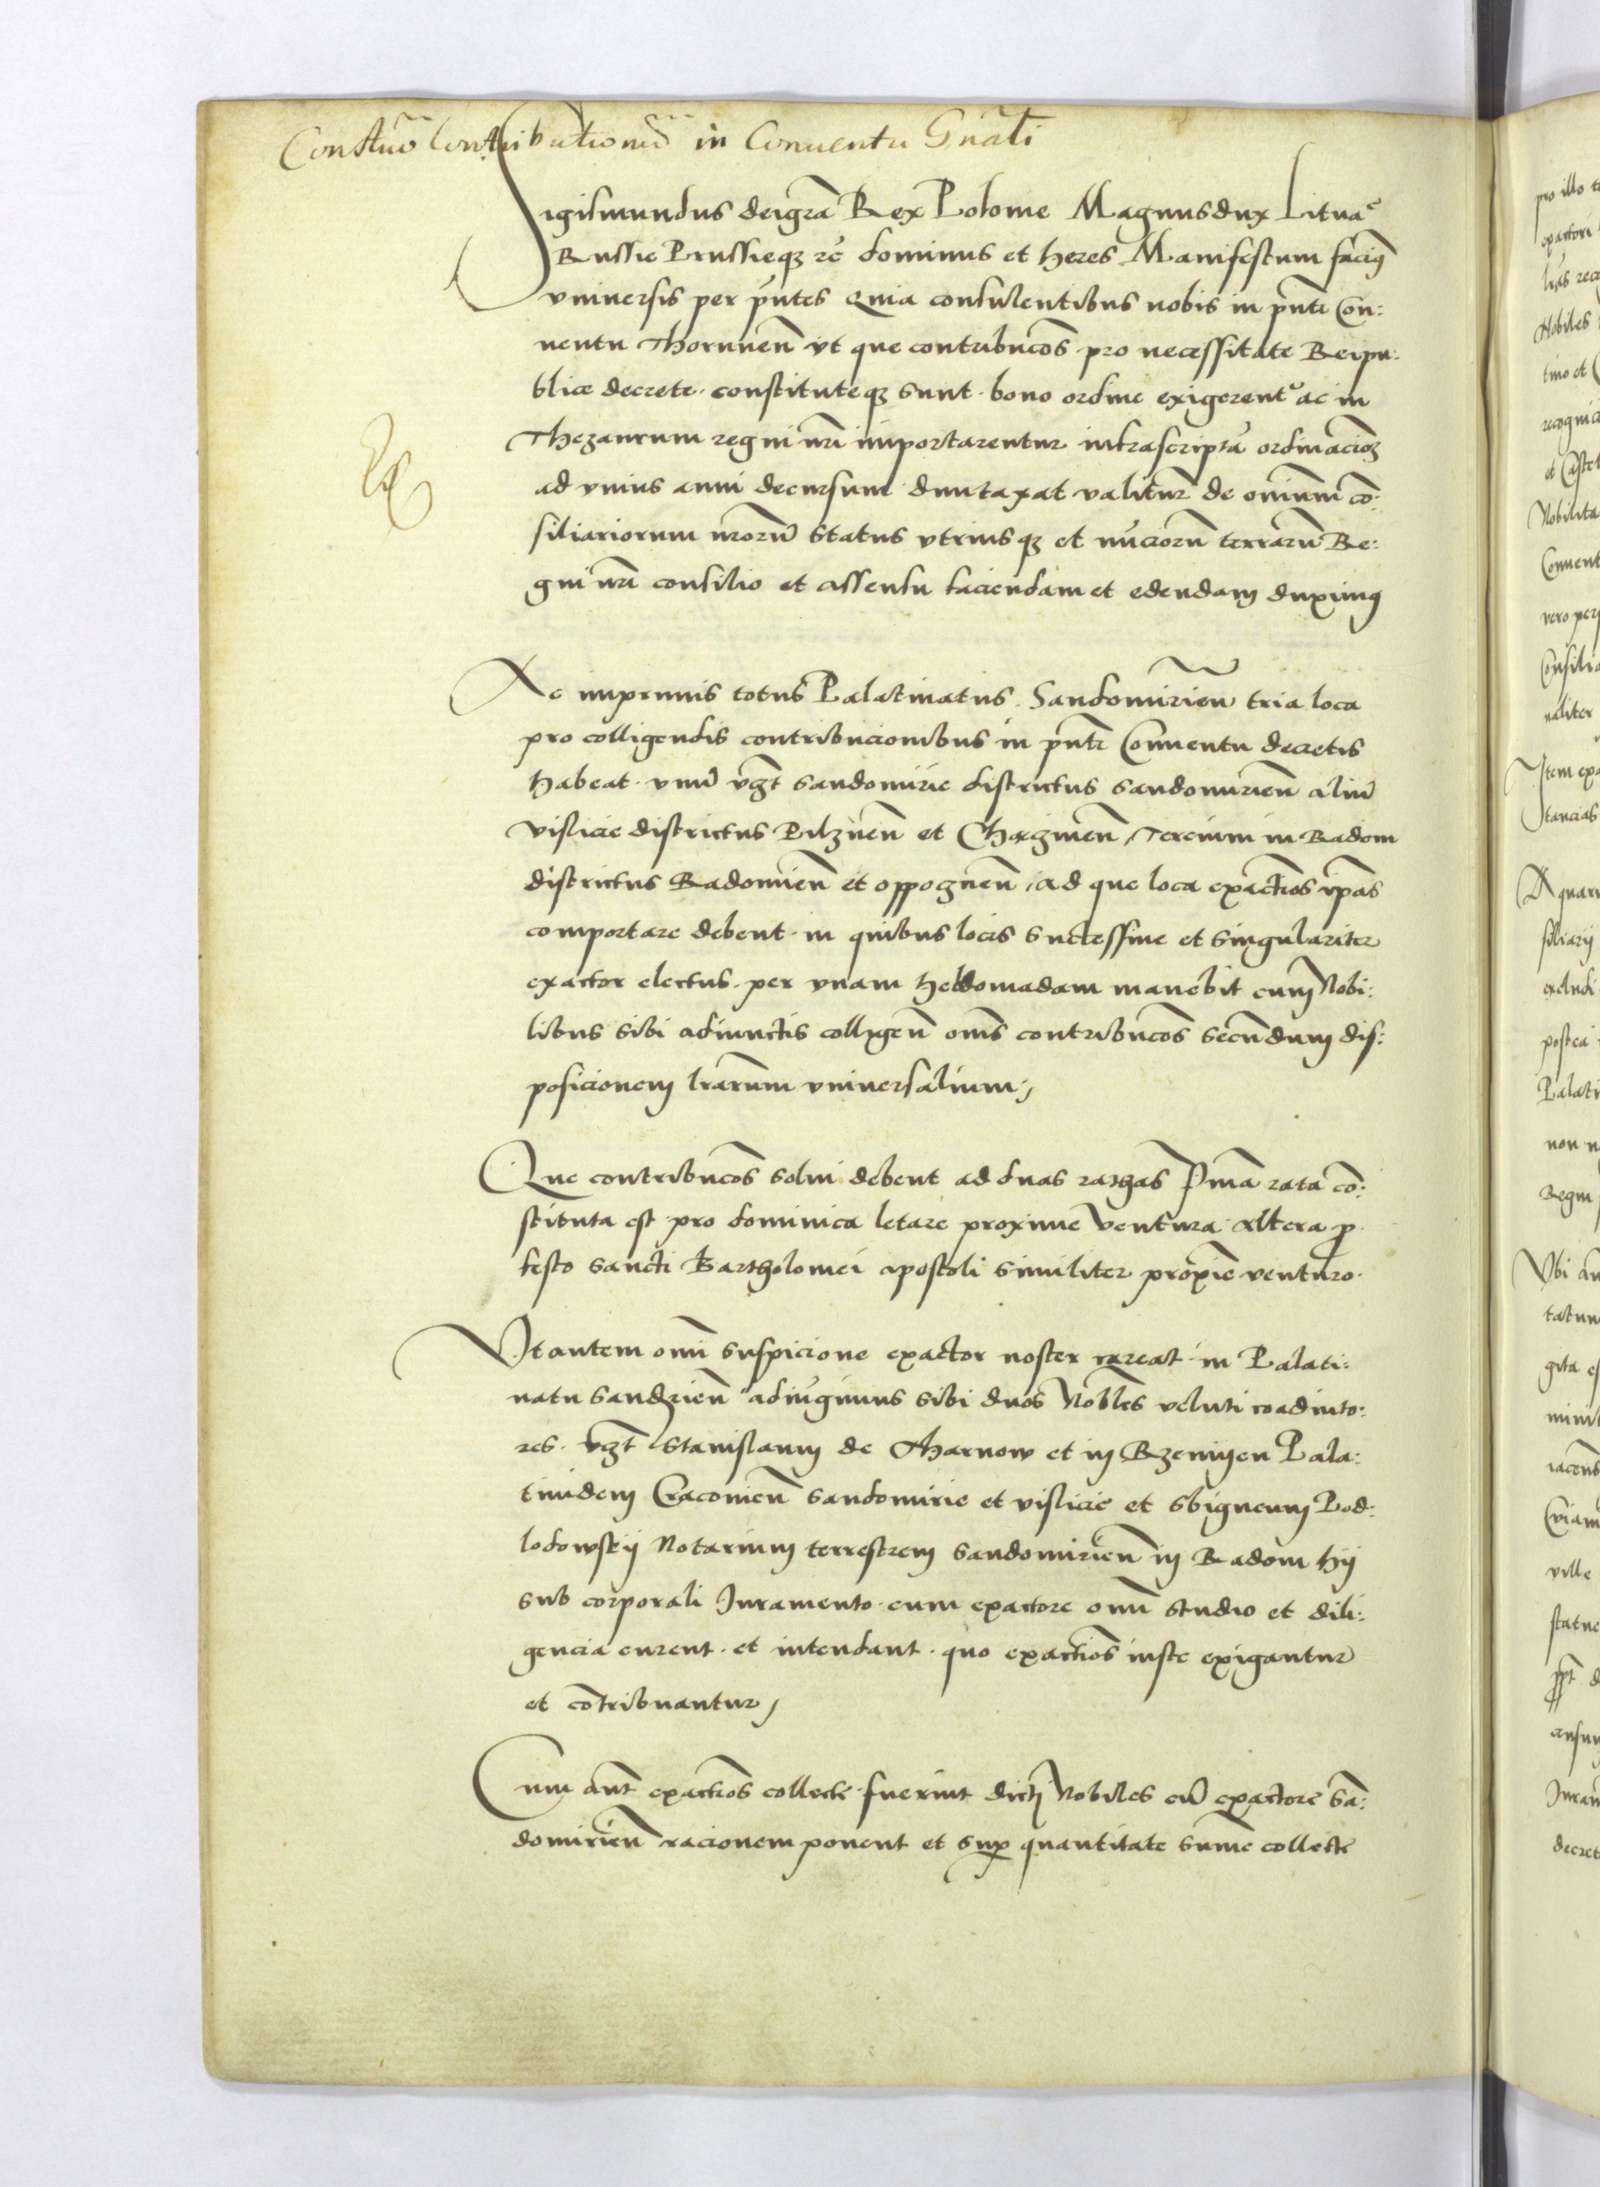 Constitũo Contributionũ in Conuentu Gnãli
Sigismundus dei grã Rex Polonie Magnus dux Lituãe
Russie Prussieqȝ rc̃ dominus et heres Manifestum facimꝰ
vniuersis per p̃ntes Quia consulentibus nobis in p̃nti Con:
uentu Thorunien̄ vt que contribuc̃oes pro necessitate Reipu:
blice decrete constituteqȝ sunt bono ordine exigerent᷑ ac in
Thezaurum regni nr̃i importarentur infrascriptã ordinacioneȝ
ad vnius anni decursum duntaxat valiturã de omnium cõ:
siliariorum nr̃orũ status vtriusqȝ et nũciorũ terrarũ Re:
gni nr̃i consilio et assensu faciendam et edendam duximꝰ
Ac inprimis totus Palatinatus Sandomirien̄ tria loca
pro colligendis contribucionibus in p̃nti Conuentu decretis
habeat vnũ vʒt Sandomirie districtus Sandomirien̄ aliũ
vislicie districtus Pilznen̄ et Chȩcʒinen̄, Tercium in Radom
districtus Radomien̄ et oppocʒnen̄, ad que loca exactiões ip̃as
comportare debent in quibus locis successiue et singulariter
exactor electus per vnam hebdomadam manebit cum Nobi:
libus sibi adiunctis colligen̄ om̃s contribuc̃oes secundum dis:
posicionem lr̃arum vniuersalium,
Que contribuc̃oes solui debent ad duas rathas Prima rata cõ:
stituta est pro dominica letare proxime ventura altera ꝓ
festo sancti Bartholomei apostoli similiter proxime venturo
Vt autem om̃i suspicione exactor noster careat in Palati:
natu Sandrien̄ adiũgimus sibi duos Nobiles veluti coadiuto:
res vʒt Stanislaum de Tharnow et in Rzemijen Pala:
tinidem Cracouien̄ Sandomirie et vislicie et Sbigneum Pod:
lodowskij Notarium terrestrem Sandomirien̄ in Radom hij
sub corporali Iuramento cum exactore om̃i studio et dili:
gencia curent et intendant quo exactiões iuste exigantur
et cõtribuantur,
Cum aut̃ exactiões collecte fuerint dicti Nobiles cũ exactore Sã:
domirien̄ racionem ponent et suꝑ quantitate sum̃e collecte